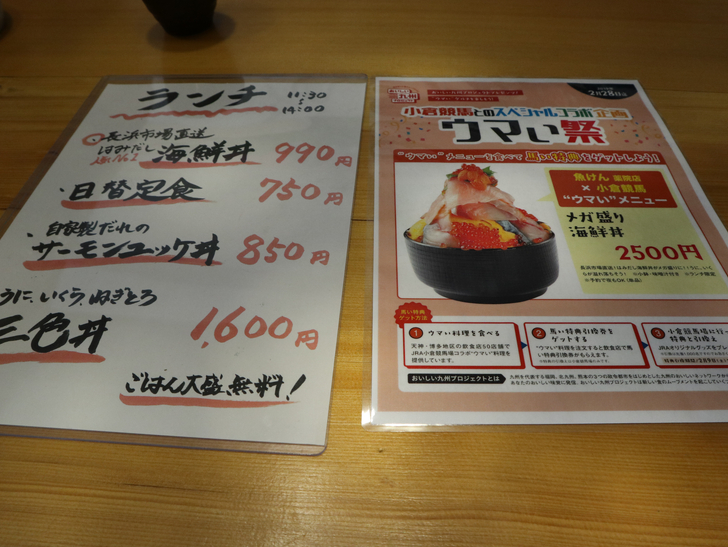 ランチ 11:30
~
14:00
長浜市場直送
はみだし
海鮮丼 990円
・日替定食 750円
・自家製だれの
サーモンユッケ丼 850円
うに、いくら、ねぎとろ
三色丼 1,600円
ごはん大盛無料!
2月28日
小倉競馬とのスペシャルコラボ企画
ウマい祭
"ウマい"メニューを食べて馬い特典をゲットしよう!
魚けん 薬院店
×小倉競馬
"ウマい"メニュー
メガ盛り
海鮮丼
2500円
馬い特典
ゲット方法
1 ウマい料理を食べる
天神・博多地区の飲食店50店舗で
JRA小倉競馬場コラボ"ウマい"料理を
提供しています。
2 馬い特典引換券を
ゲットする
"ウマい"料理を注文すると飲食店で馬
い特典引換券がもらえます。
3 小倉競馬場に行って
特典と引換え
JRAオリジナルグッズをプレ
おいしい九州プロジェクトとは